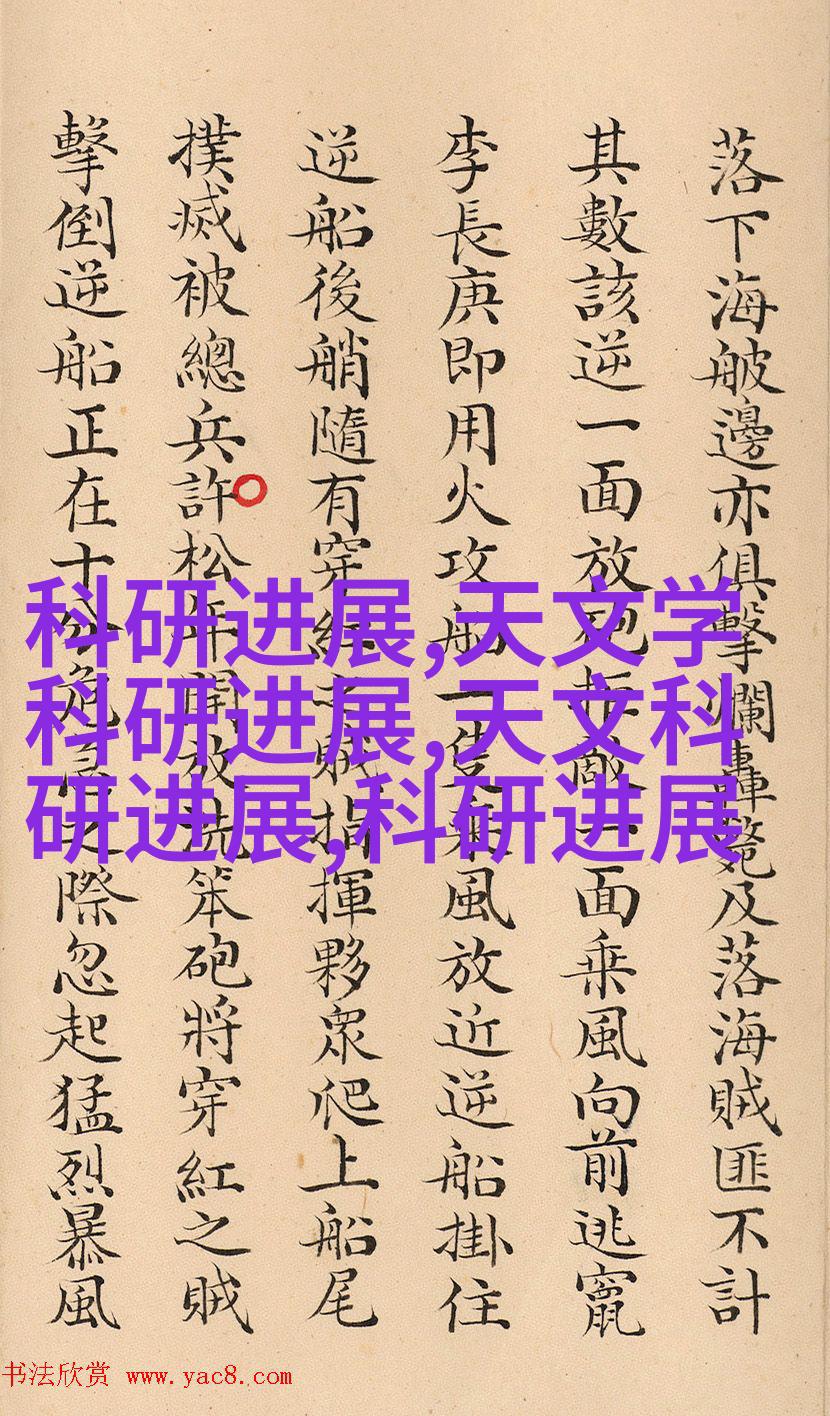 落下海皷邊亦俱擊爛轟斃及落海賊匪不計
其數該逆一面放砲拒敵一面乗風向前逃竄
李長庚即用火攻船一隻乘風放近逆船掛住
逆船後艄隨有穿紅賊指揮夥眾爬上船尾
撲滅被總兵許松年開放洗笨砲將穿紅之賊
擊倒逆船正在十分危急之際忽起猛烈暴風
科研进展,天文学
科研进展,天文科
研进展,科研进展
书法欣赏 www.yac8.com